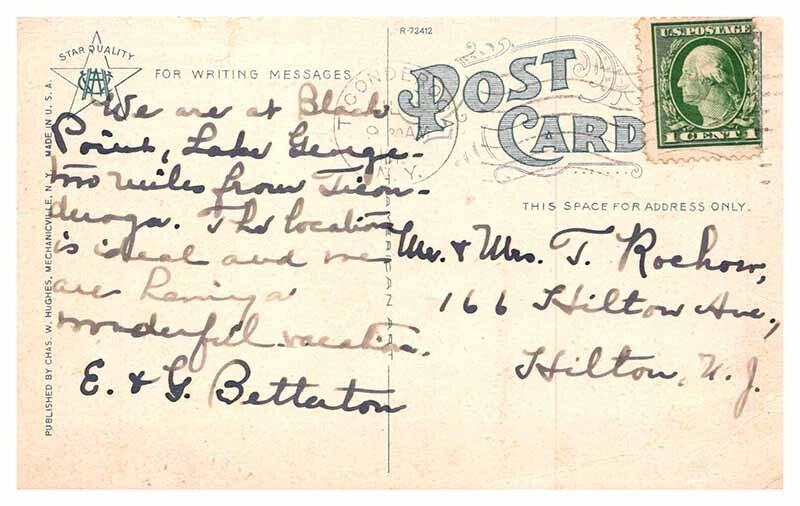 R-72412
STAR QUALITY
FOR WRITING MESSAGES
POST
CARD
U.S. POSTAGE
1 CENT 1
TICONDERO
30 AM
N.Y.
THIS SPACE FOR ADDRESS ONLY.
We are at Black
Point, Lake George-
two miles from Ticon-
deroga. The location
is ideal and we
are having a
wonderful vacation.
E. & G. Betterton
Mr. & Mrs. T. Rochow,
166 Hilton Ave.,
Hilton, N. J.
PUBLISHED BY CHAS. W. HUGHES, MECHANICVILLE, N.Y. MADE IN U.S.A.
AMERICAN ART